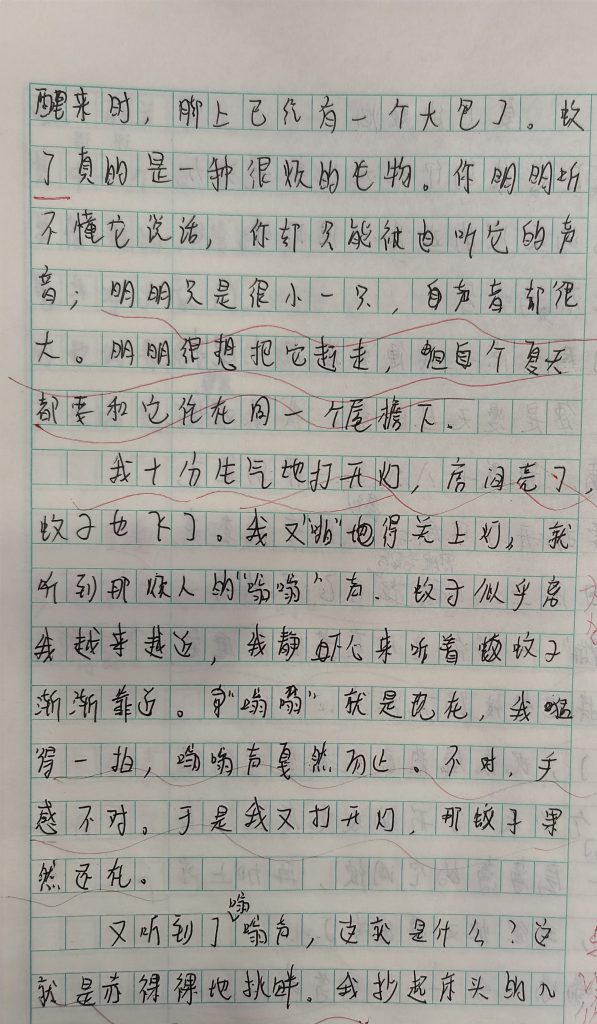 醒来时，脚上已经有一个大包了。蚊
了真的是一种很烦的毛物。你明明听
不懂它说话，你却只能被迫听它的声
音；明明只是很小一只，自声音都很
大。明明很想把它赶走，但自个夏天
都要和它住在同一个屋檐下。
我十分生气地打开灯，房间亮了，
蚊子也飞了。我又"啪"地得关上灯，就
听到那烦人的"嗡嗡"声．蚊子似乎离
我越来越近，我静下心来听着蚊子
渐渐靠近。"嗡嗡"就是现在，我猛
得一拍，嗡嗡声戛然而止。不对，手
感不对。于是我又打开灯，那蚊子果
然还在。
又听到了嗡嗡声，这就是什么？这
就是赤裸裸地挑衅。我抄起床头的